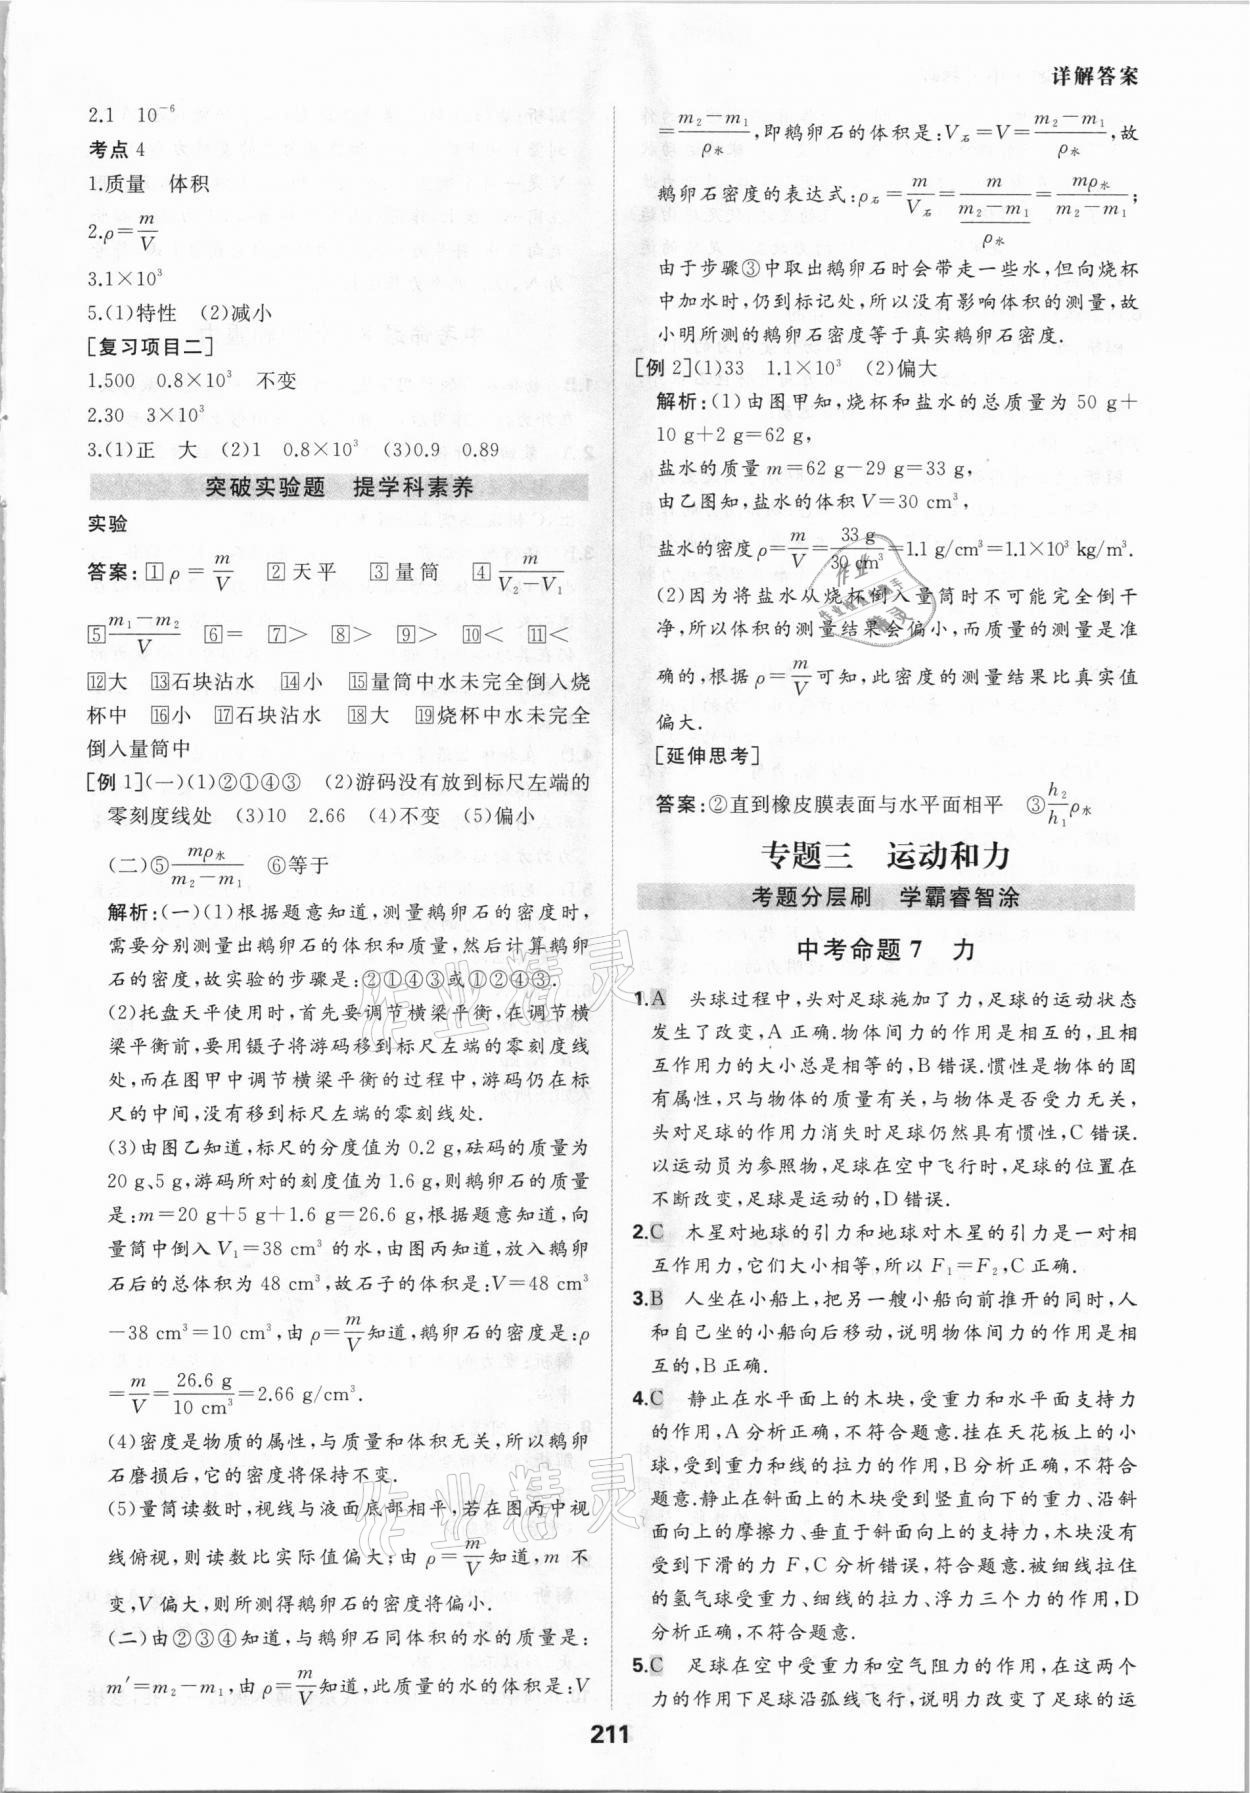 详解答案
2.1　10⁻⁶
考点 4
1.质量　体积
2.ρ=m/V
3.1×10³
5.(1)特性　(2)减小
[复习项目二]
1.500　0.8×10³　不变
2.30　3×10³
3.(1)正　大　(2)1　0.8×10³　(3)0.9　0.89
突破实验题　提学科素养
实验
答案:[1]ρ=m/V　[2]天平　[3]量筒　[4]m/(V₂-V₁)
[5](m₁-m₂)/V　[6]=　[7]>　[8]>　[9]>　[10]<　[11]<
[12]大　[13]石块沾水　[14]小　[15]量筒中水未完全倒入烧
杯中　[16]小　[17]石块沾水　[18]大　[19]烧杯中水未完全
倒入量筒中
[例 1](一)(1)②①④③　(2)游码没有放到标尺左端的
零刻度线处　(3)10　2.66　(4)不变　(5)偏小
(二)⑤mρ水/(m₂-m₁)　⑥等于
解析:(一)(1)根据题意知道,测量鹅卵石的密度时,
需要分别测量出鹅卵石的质量和体积,然后计算鹅卵
石的密度,故实验的步骤是:②①④③或①②④③.
(2)托盘天平使用时,首先要调节横梁平衡,在调节横
梁平衡前,要用镊子将游码移到标尺左端的零刻度线
处,而在图甲中调节横梁平衡的过程中,游码仍在标
尺的中间,没有移到标尺左端的零刻线处.
(3)由图乙知道,标尺的分度值为 0.2 g,砝码的质量为
20 g、5 g,游码所对的刻度值为 1.6 g,则鹅卵石的质量
是:m=20 g+5 g+1.6 g=26.6 g,根据题意知道,向
量筒中倒入 V₁=38 cm³ 的水,由图丙知道,放入鹅卵
石后的总体积为 48 cm³,故石子的体积是:V=48 cm³
-38 cm³=10 cm³,由 ρ=m/V知道,鹅卵石的密度是:ρ
=m/V=26.6 g/10 cm³=2.66 g/cm³.
(4)密度是物质的属性,与质量和体积无关,所以鹅卵
石磨损后,它的密度将保持不变.
(5)量筒读数时,视线与液面底部相平,若在图丙中视
线俯视,则读数比实际值偏大;由 ρ=m/V知道,m 不
变,V 偏大,则所测得鹅卵石的密度将偏小.
(二)由②③④知道,与鹅卵石同体积的水的质量是:
m′=m₂-m₁,由ρ=m/V知道,此质量的水的体积是:V
=(m₂-m₁)/ρ水,即鹅卵石的体积是:V石=V=(m₂-m₁)/ρ水,故
鹅卵石密度的表达式:ρ石=m/V石=m/((m₂-m₁)/ρ水)=mρ水/(m₂-m₁);
由于步骤③中取出鹅卵石时会带走一些水,但向烧杯
中加水时,仍到标记处,所以没有影响体积的测量,故
小明所测的鹅卵石密度等于真实鹅卵石密度.
[例 2](1)33　1.1×10³　(2)偏大
解析:(1)由图甲知,烧杯和盐水的总质量为 50 g+
10 g+2 g=62 g,
盐水的质量 m=62 g-29 g=33 g,
由乙图知,盐水的体积 V=30 cm³,
盐水的密度 ρ=m/V=33 g/30 cm³=1.1 g/cm³=1.1×10³ kg/m³.
(2)因为将盐水从烧杯倒入量筒时不可能完全倒干
净,所以体积的测量结果会偏小,而质量的测量是准
确的,根据 ρ=m/V可知,此密度的测量结果比真实值
偏大.
[延伸思考]
答案:②直到橡皮膜表面与水平面相平　③h₂/h₁ρ水
专题三　运动和力
考题分层刷　学霸睿智涂
中考命题 7　力
1.A　头球过程中,头对足球施加了力,足球的运动状态
发生了改变,A 正确.物体间力的作用是相互的,且相
互作用力的大小总是相等的,B 错误.惯性是物体的固
有属性,只与物体的质量有关,与物体是否受力无关,
头对足球的作用力消失时足球仍然具有惯性,C 错误.
以运动员为参照物,足球在空中飞行时,足球的位置在
不断改变,足球是运动的,D 错误.
2.C　木星对地球的引力和地球对木星的引力是一对相
互作用力,它们大小相等,所以 F₁=F₂,C 正确.
3.B　人坐在小船上,把另一艘小船向前推开的同时,人
和自己坐的小船向后移动,说明物体间力的作用是相
互的,B 正确.
4.C　静止在水平面上的木块,受重力和水平面支持力
的作用,A 分析正确,不符合题意.挂在天花板上的小
球,受到重力和线的拉力的作用,B 分析正确,不符合
题意.静止在斜面上的木块受到竖直向下的重力、沿斜
面向上的摩擦力、垂直于斜面向上的支持力,木块没有
受到下滑的力 F,C 分析错误,符合题意.被细线拉住
的氢气球受重力、细线的拉力、浮力三个力的作用,D
分析正确,不符合题意.
5.C　足球在空中受重力和空气阻力的作用,在这两个
力的作用下足球沿弧线飞行,说明力改变了足球的运
211
作业精灵
作业精灵